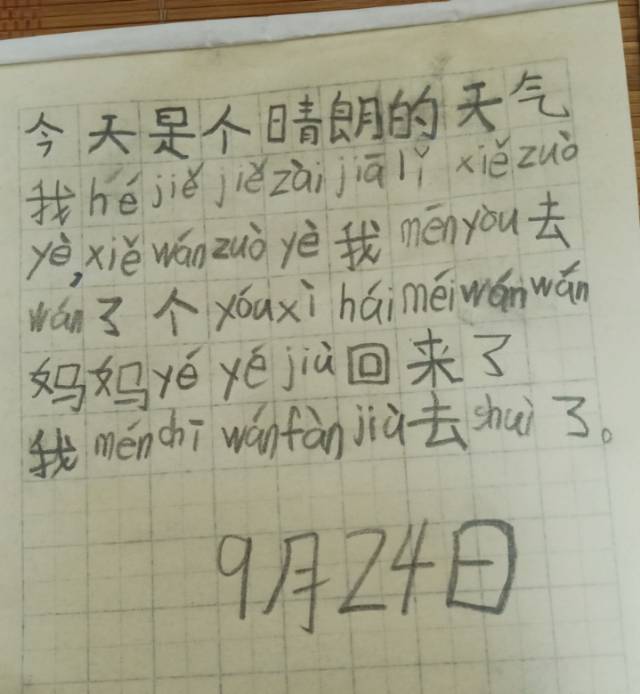 今天是个晴朗的天气
我hé jiě jiě zài jiā lǐ xiě zuò
yè,xiě wán zuò yè我mēn yòu去
wán了个yóu xì hái méi wán wán
妈妈yé yé jiù回来了
我mén chī wán fàn jiù去shuì了。
9月24日